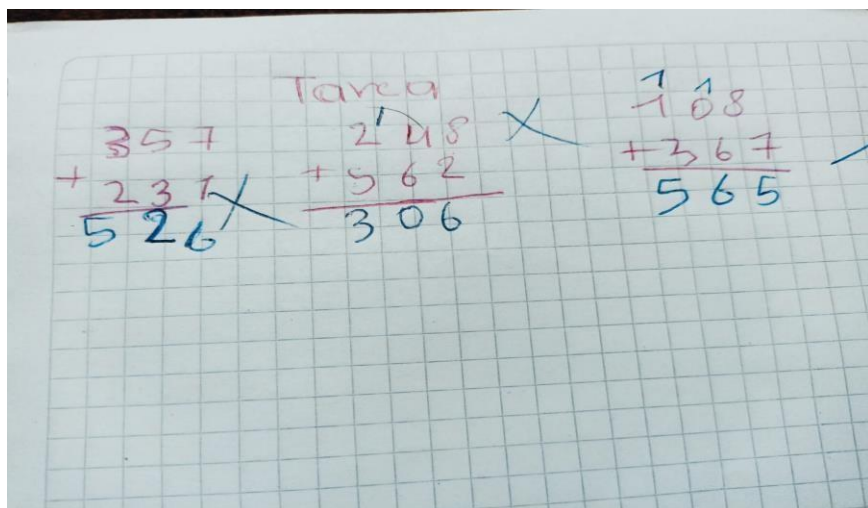 Tarea
357
+ 231
526
248
+ 562
306
108
+ 367
565